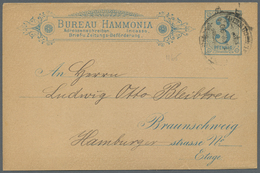 BUREAU HAMMONIA
3
An Herrn
Ludwig Otto Bleibtreu
Braunschweig
Hamburger strasse No.
Etage